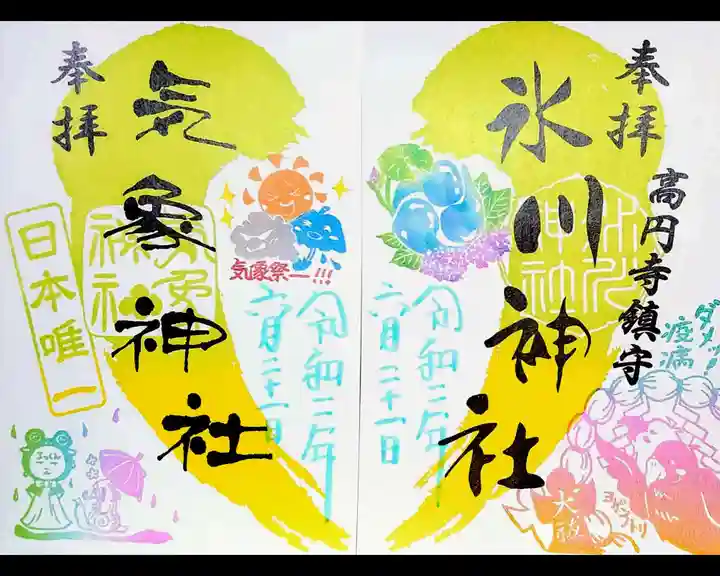 奉拝
氷川神社
高円寺鎮守
令和三年
六月二十一日
ダメ!
疫病
大祓
ヨゲンノトリ
奉拝
気象神社
日本唯一
気象祭ー!!!
令和三年
六月二十一日